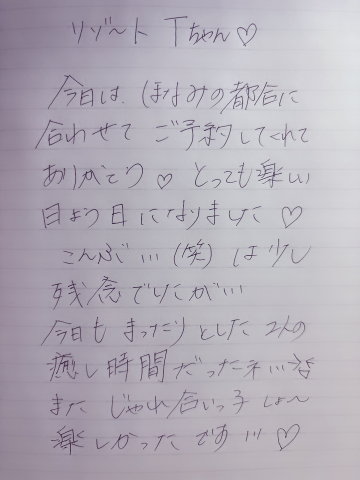 リゾート Tちゃん♡
今日は、ほなみの都合に
合わせて ご予約してくれて
ありがとう♡ とっても楽しい
日よう日になりました♡
こんぶ…(笑) は少し
残念でしたが…
今日も まったりとした 2人の
癒し時間だったネ…
また じゃれ合いっ子 しよ〜
楽しかったです!!! ♡